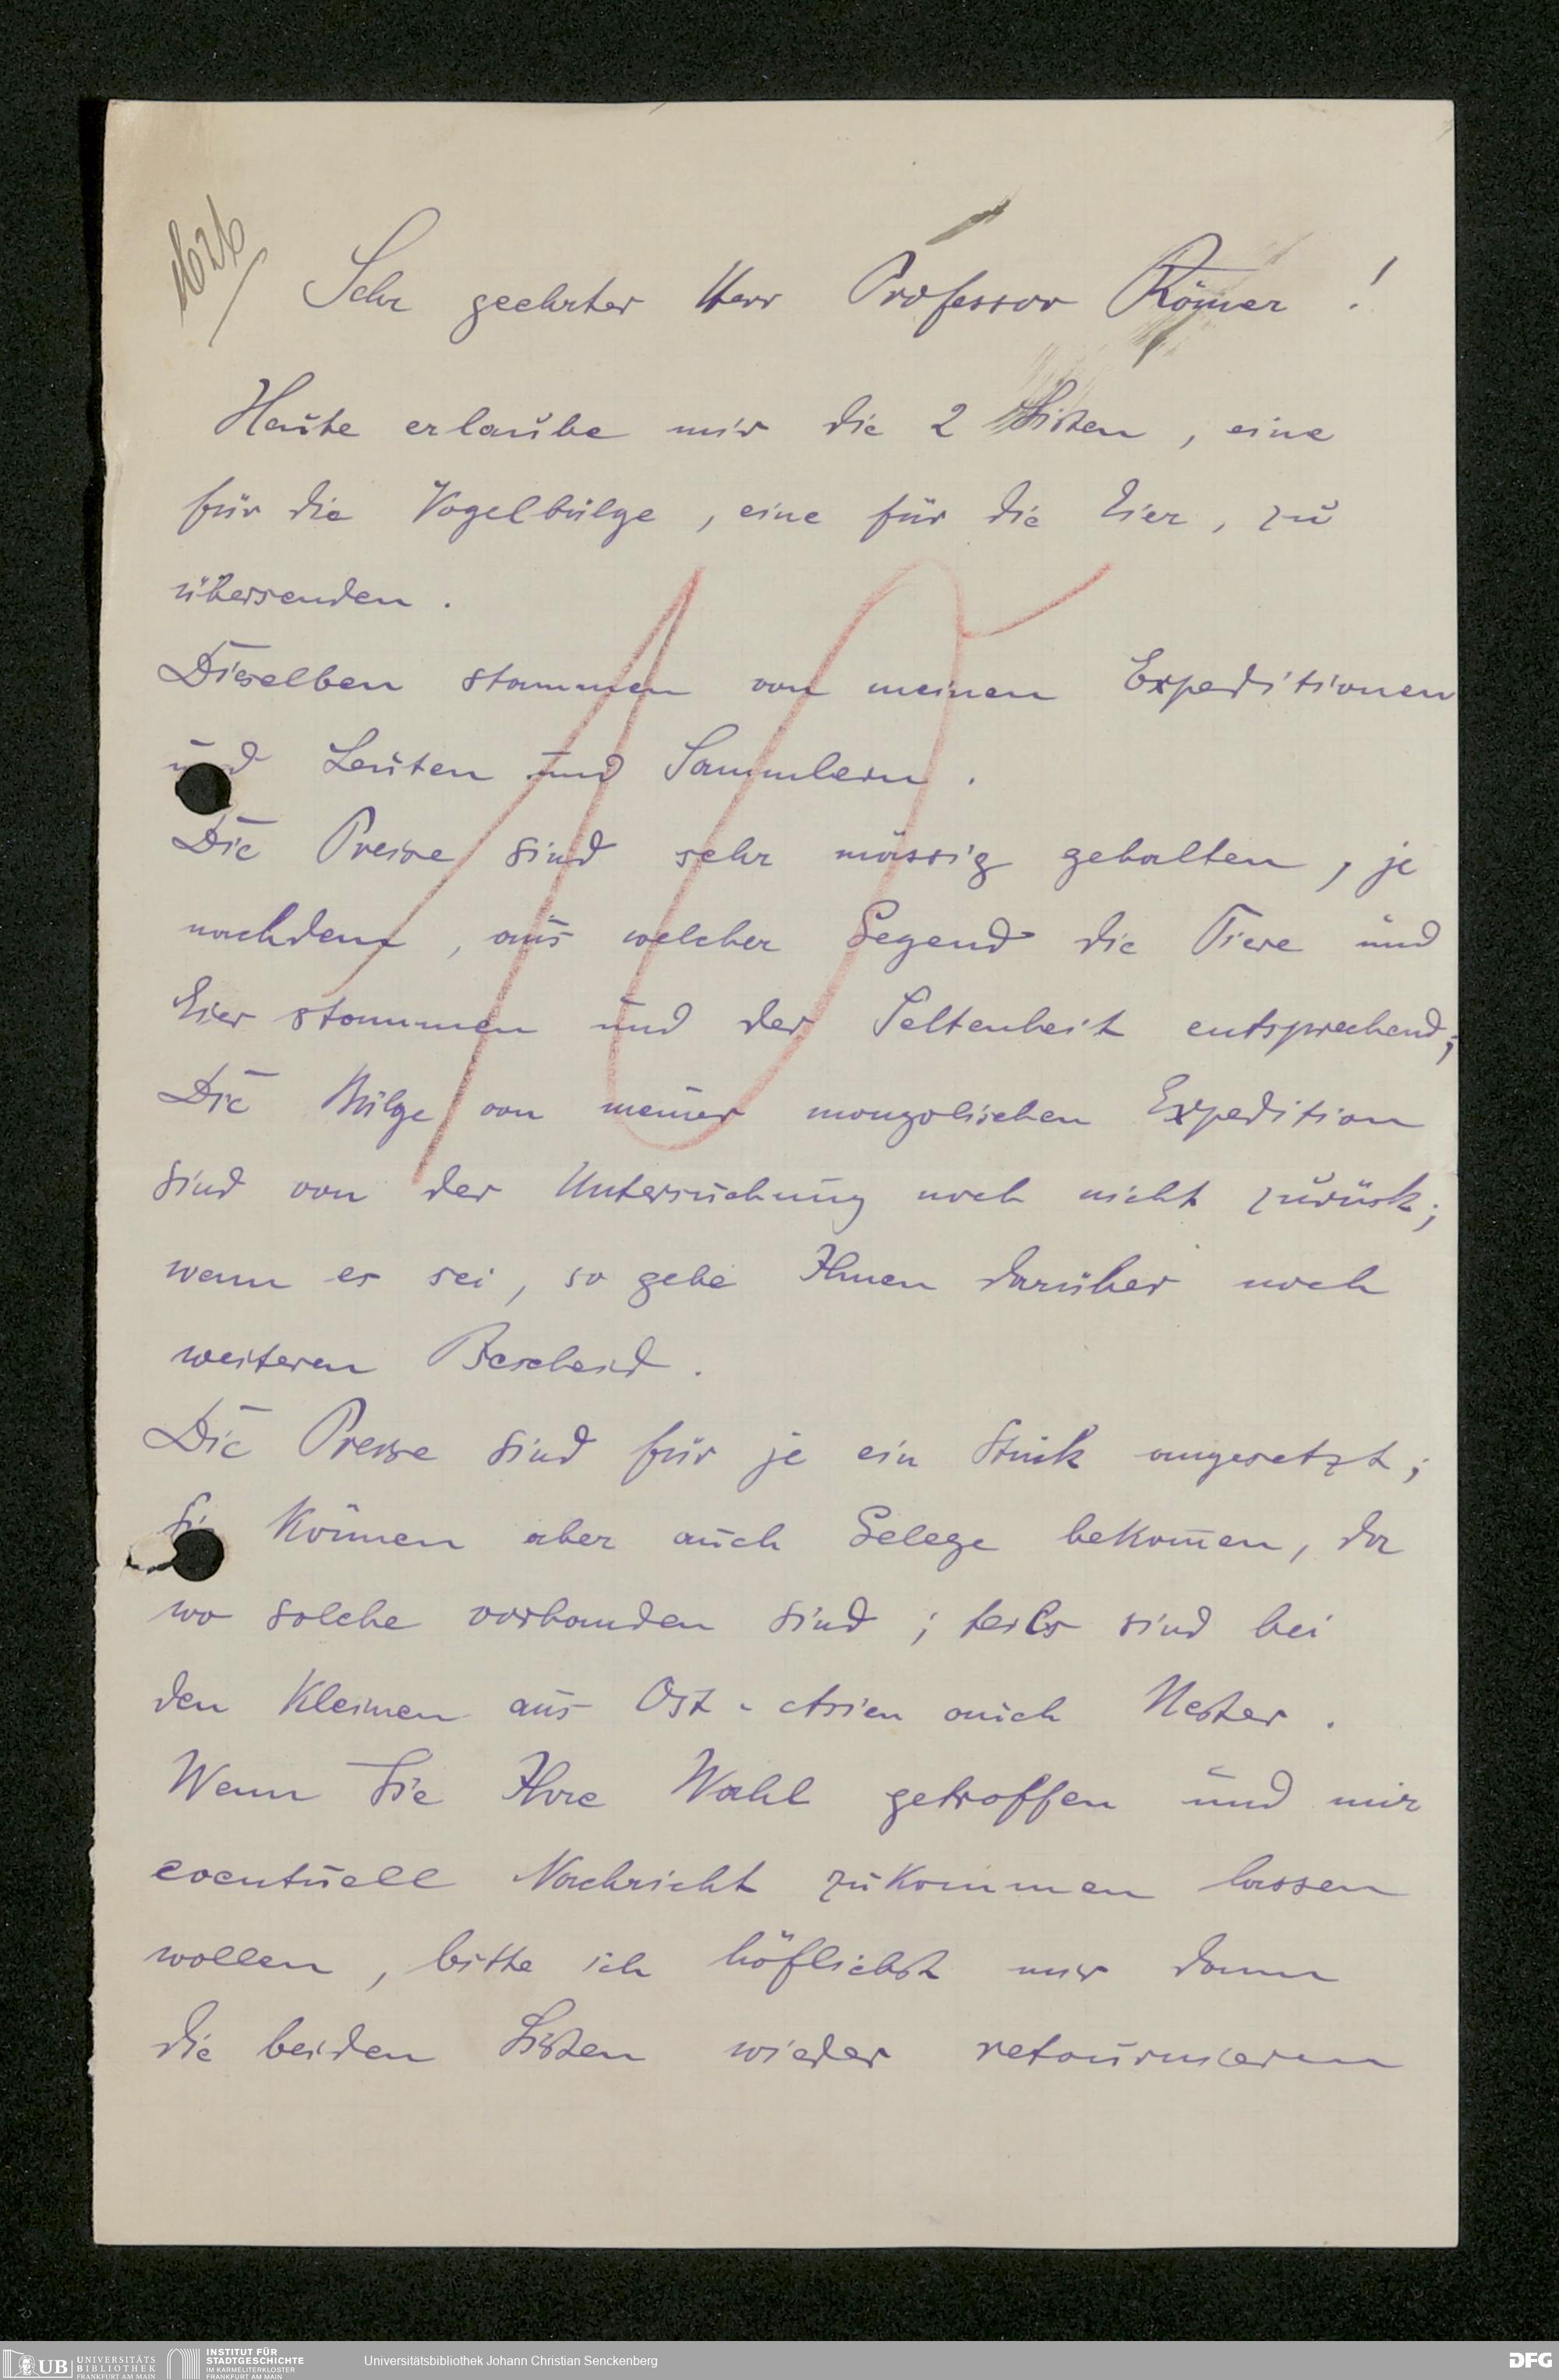 1626
Sehr geehrter Herr Professor Römer !
Heute erlaube mir die 2 Listen , eine
für die Vogelbälge , eine für die Eier , zu
übersenden .
Dieselben stammen von meinen Expeditionen
und Leuten und Sammlern .
Die Preise sind sehr mässig gehalten , je
nachdem , aus welcher Gegend die Tiere und
Eier stammen und der Seltenheit entsprechend ;
Die Bälge von meiner mongolischen Expedition
sind von der Untersuchung noch nicht zurück ;
wenn es sei , so gebe Ihnen darüber noch
weiteren Bescheid .
Die Preise sind für je ein Stück angesetzt ;
Sie können aber auch Gelege bekom̅en , da
wo solche vorhanden sind ; teils sind bei
den Kleinen aus Ost - Asien auch Nester .
Wenn Sie Ihre Wahl getroffen und mir
eventuell Nachricht zukommen lassen
wollen , bitte ich höflichst mir dann
die beiden Listen wieder retournieren
UB UNIVERSITÄTS
BIBLIOTHEK
FRANKFURT AM MAIN
INSTITUT FÜR
STADTGESCHICHTE
IM KARMELITERKLOSTER
FRANKFURT AM MAIN
Universitätsbibliothek Johann Christian Senckenberg
DFG